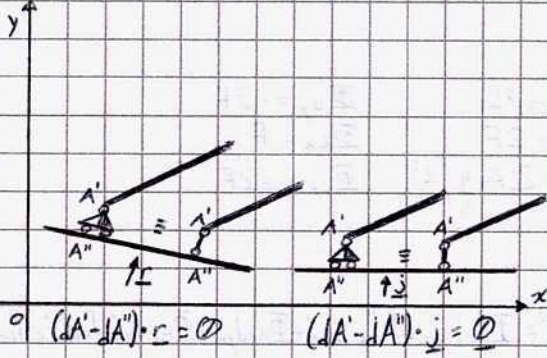 y
A'
A'
A''
A''
r
≡
A'
A'
A''
A''
j
≡
x
0
(dA'-dA'')·r = 0
(dA'-dA'')·j = 0